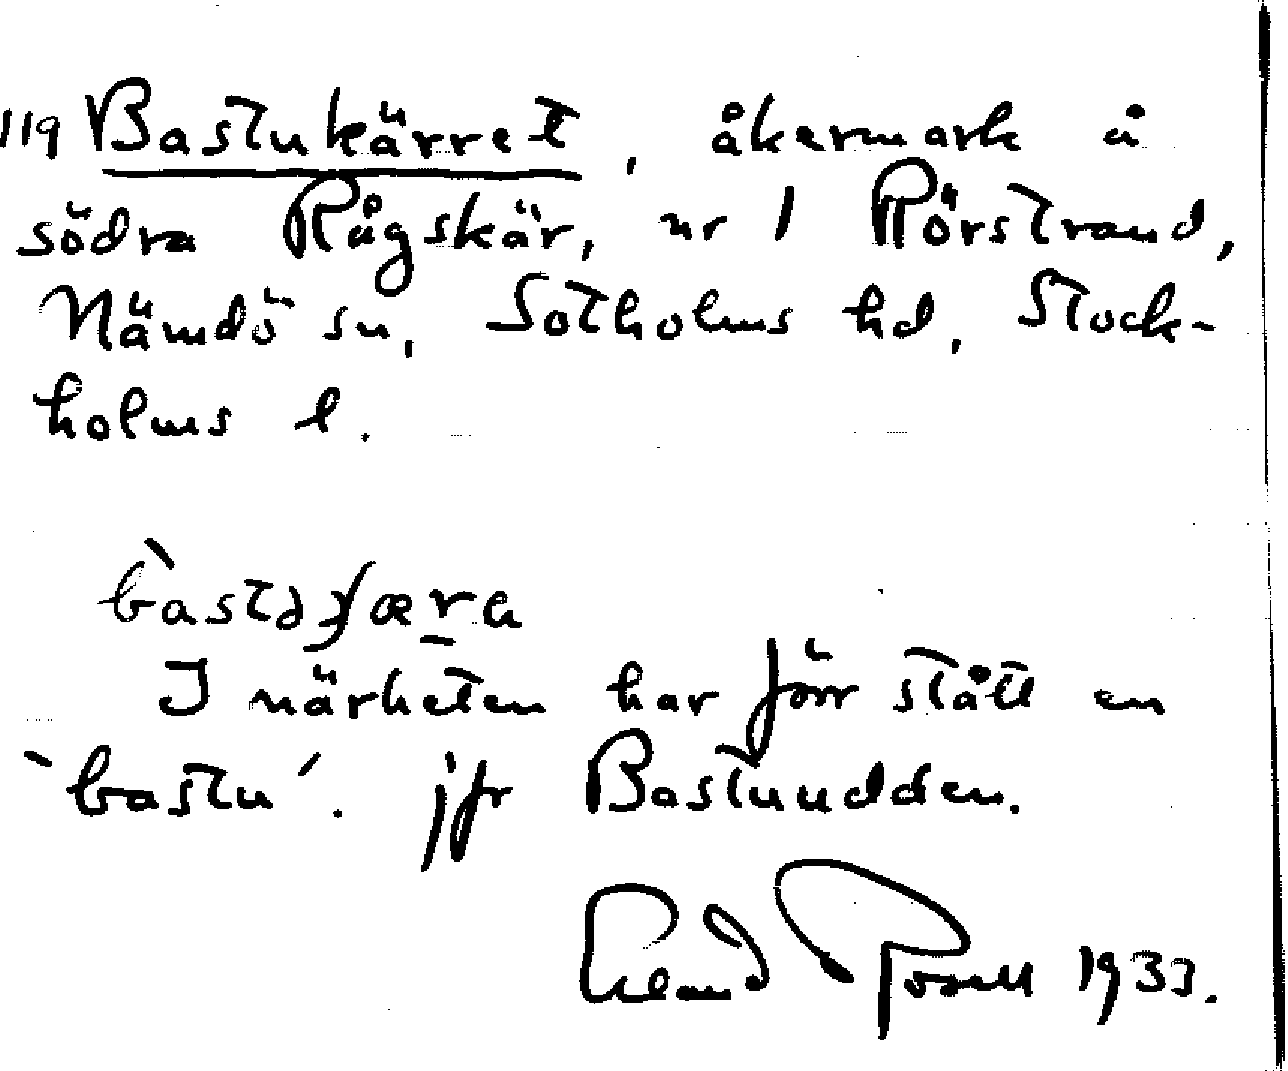 119 Bastukärret, åkermark å
södra Rågskär, nr 1 Rörstrand,
Nämdö sn, Sotholms hd, Stock-
holms l.
I närheten har förr stått en
`bastu´. jfr Bastuudden.
1933.